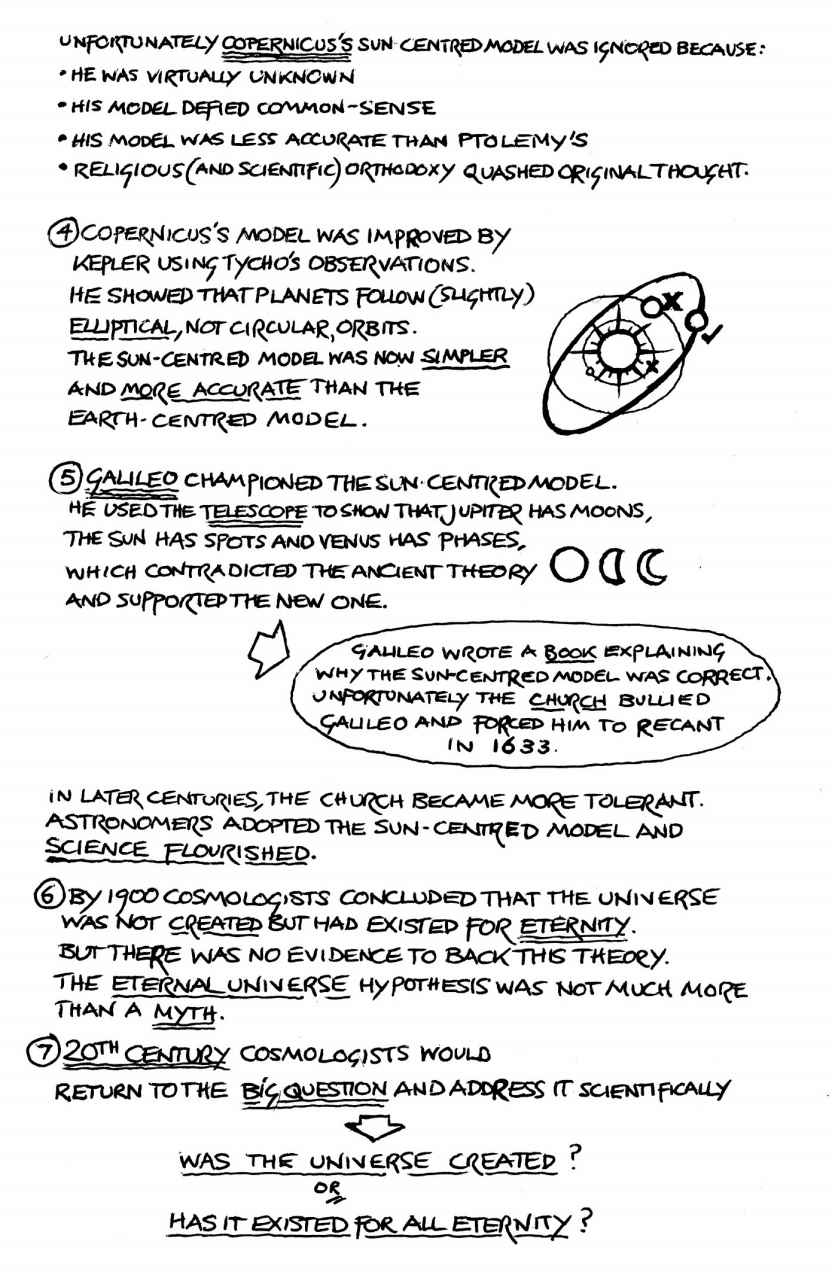 UNFORTUNATELY COPERNICUS'S SUN-CENTRED MODEL WAS IGNORED BECAUSE:
• HE WAS VIRTUALLY UNKNOWN
• HIS MODEL DEFIED COMMON-SENSE
• HIS MODEL WAS LESS ACCURATE THAN PTOLEMY'S
• RELIGIOUS (AND SCIENTIFIC) ORTHODOXY QUASHED ORIGINAL THOUGHT.
④ COPERNICUS'S MODEL WAS IMPROVED BY
KEPLER USING TYCHO'S OBSERVATIONS.
HE SHOWED THAT PLANETS FOLLOW (SLIGHTLY)
ELLIPTICAL, NOT CIRCULAR, ORBITS.
THE SUN-CENTRED MODEL WAS NOW SIMPLER
AND MORE ACCURATE THAN THE
EARTH-CENTRED MODEL.
⑤ GALILEO CHAMPIONED THE SUN-CENTRED MODEL.
HE USED THE TELESCOPE TO SHOW THAT JUPITER HAS MOONS,
THE SUN HAS SPOTS AND VENUS HAS PHASES,
WHICH CONTRADICTED THE ANCIENT THEORY
AND SUPPORTED THE NEW ONE.
GALILEO WROTE A BOOK EXPLAINING
WHY THE SUN-CENTRED MODEL WAS CORRECT.
UNFORTUNATELY THE CHURCH BULLIED
GALILEO AND FORCED HIM TO RECANT
IN 1633.
IN LATER CENTURIES, THE CHURCH BECAME MORE TOLERANT.
ASTRONOMERS ADOPTED THE SUN-CENTRED MODEL AND
SCIENCE FLOURISHED.
⑥ BY 1900 COSMOLOGISTS CONCLUDED THAT THE UNIVERSE
WAS NOT CREATED BUT HAD EXISTED FOR ETERNITY.
BUT THERE WAS NO EVIDENCE TO BACK THIS THEORY.
THE ETERNAL UNIVERSE HYPOTHESIS WAS NOT MUCH MORE
THAN A MYTH.
⑦ 20TH CENTURY COSMOLOGISTS WOULD
RETURN TO THE BIG QUESTION AND ADDRESS IT SCIENTIFICALLY
WAS THE UNIVERSE CREATED?
OR
HAS IT EXISTED FOR ALL ETERNITY?